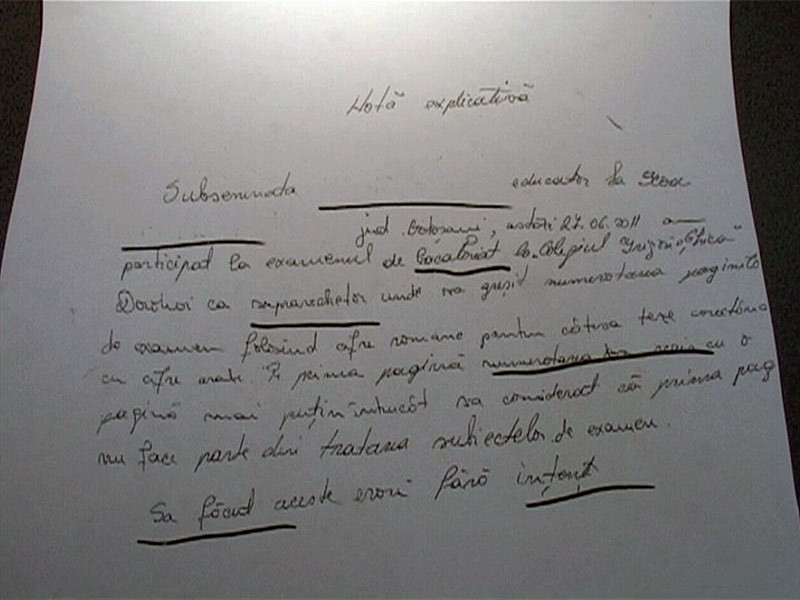 Notă explicativă
Subsemnata educator la Scoa
jud. Botoșani, astăzi 27.06.2011 a
participat la examenul de bacaloriat la Colegiul "Grigore Ghica"
Dorohoi ca supraveghetor unde sa greșit numerotarea paginilo
de examen folosind cifre romane pentru câtva teze corectâna
cu cifre arabe. Pe prima pagină numerotarea cu o
pagină mai puțin întrucât sa considerat că prima pag
nu face parte din tratarea subiectelor de examen.
Sa făcut aceste erori fără intenț